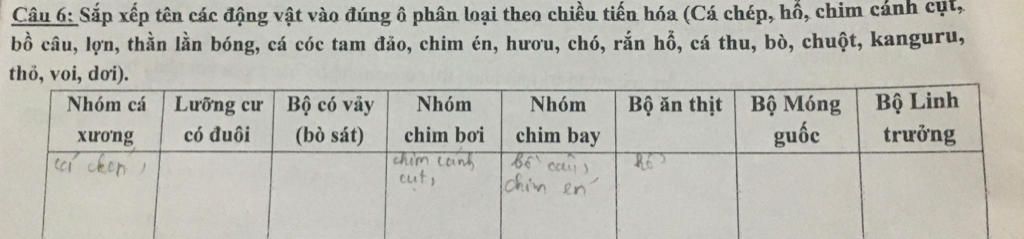 Câu 6: Sắp xếp tên các động vật vào đúng ô phân loại theo chiều tiến hóa (Cá chép, hổ, chim cánh cụt,
bồ câu, lợn, thằn lằn bóng, cá cóc tam đảo, chim én, hươu, chó, rắn hổ, cá thu, bò, chuột, kanguru,
thỏ, voi, dơi).
Nhóm cá xương
Lưỡng cư có đuôi
Bộ có vảy (bò sát)
Nhóm chim bơi
Nhóm chim bay
Bộ ăn thịt
Bộ Móng guốc
Bộ Linh trưởng
cá chép,
chim cánh
cụt,
Bồ câu,
chim én
hổ